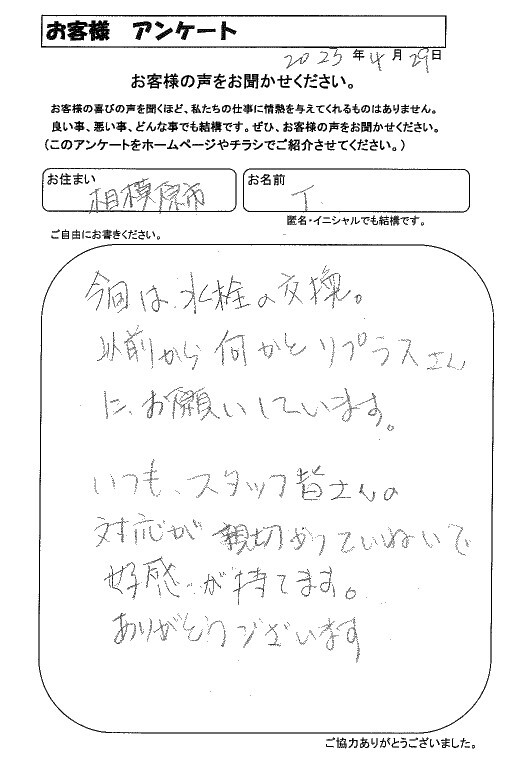 お客様 アンケート
2023年4月29日
お客様の声をお聞かせください。
お客様の喜びの声を聞くほど、私たちの仕事に情熱を与えてくれるものはありません。
良い事、悪い事、どんな事でも結構です。ぜひ、お客様の声をお聞かせください。
(このアンケートをホームページやチラシでご紹介させてください。)
お住まい
相模原市
お名前
T.
匿名・イニシャルでも結構です。
ご自由にお書きください。
今回は、水栓の交換。
以前から何かとリプラスさん
に、お願いしています。
いつも、スタッフ皆さんの
対応が親切かつていねいで
好感が持てます。
ありがとうございます
ご協力ありがとうございました。